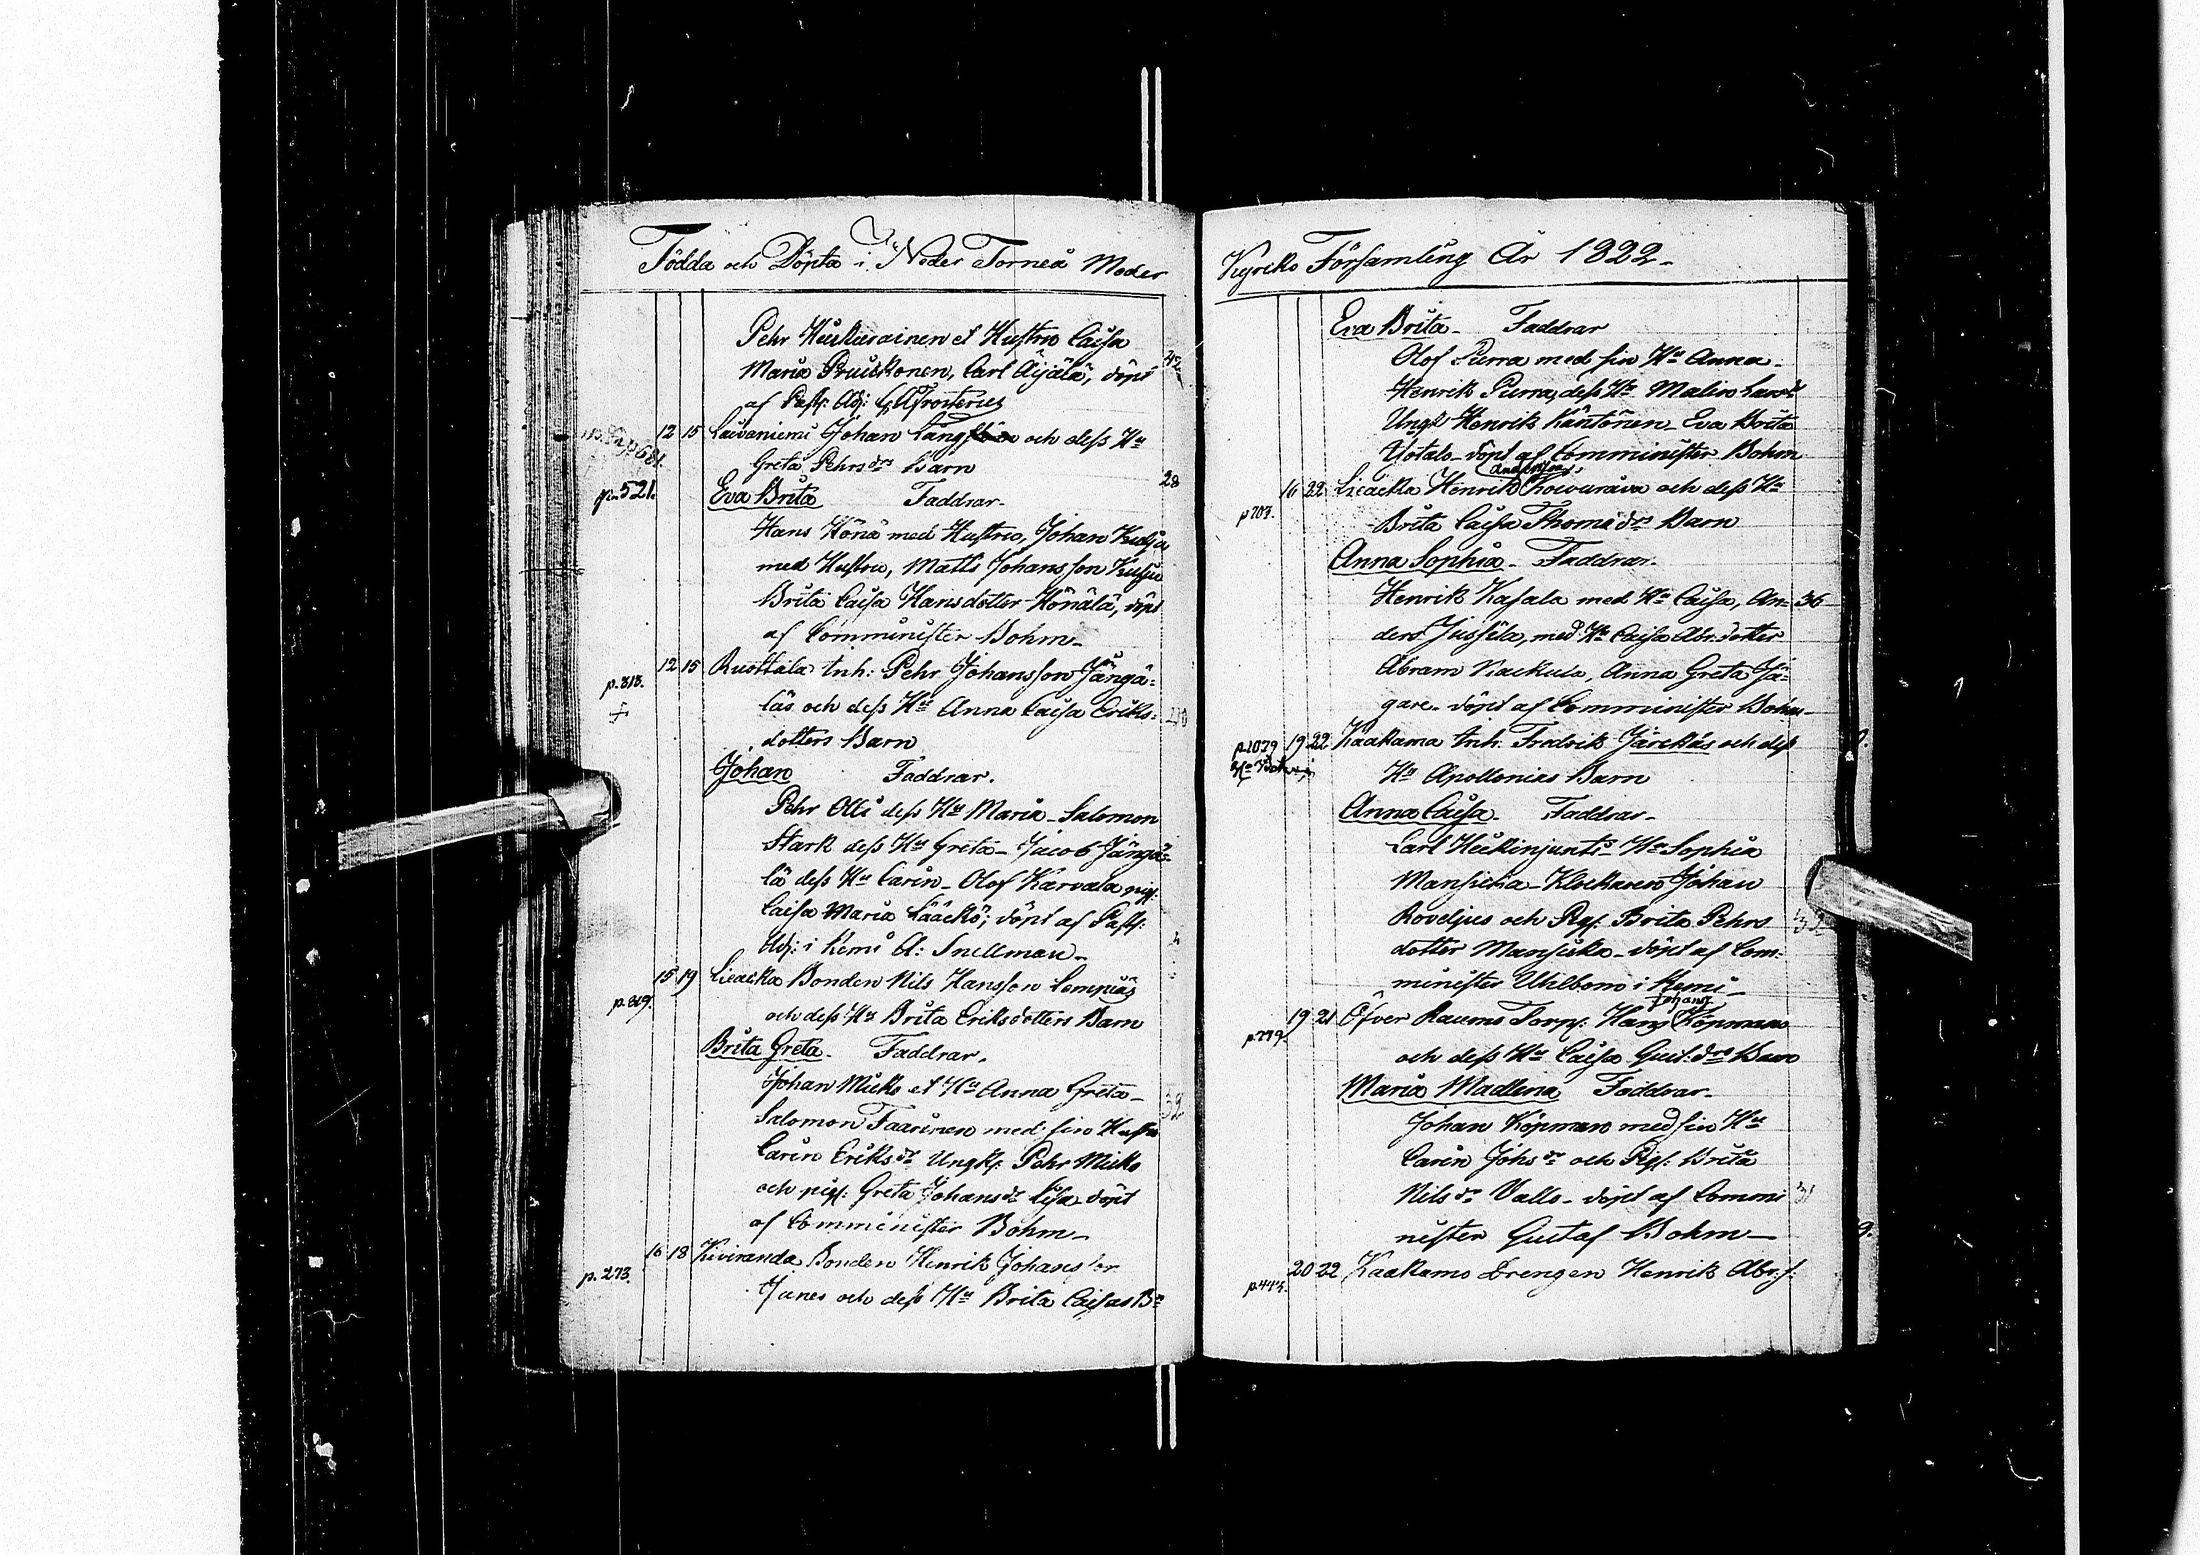 Födda och Döpta i Neder Torneå Moder
Pehr Huikurainen et Hustru Caisa
Maria Pruickonen, Carl Äijälä, döpt
af Past: Adj:
12 15 Laivaniemi Johan Lång och dess Hu
Greta Pehrsdrs Barn
p. 521. Eva Brita Faddrar. 28
Hans Könä med Hustru, Johan
med Hustru, Matts Johansson
Brita Caisa Hansdotter Könälä, döpt
af Comminister Bohm
p. 313. 12 15 Ruottala Inh: Pehr Johansson Jängä=
läs och dess Hu Anna Caisa Eriks=
dotters Barn
Johan Faddrar.
Pehr Olli dess Hu Maria Salomon
Stark dess Hu Greta Jacob Jängä=
lä dess Hu Carin Olof Karvala pig:
Caisa Maria Lääckö; döpt af Past:
Adj: i Kemi A: Snellman
p. 819. 15 19 Liedacka Bonden Nils Hansson
och dess Hu Brita Eriksdotters Barn
Brita Greta Faddrar. 32
Johan Micko et Hu Anna Greta
Salomon Faarinen med sin Hustru
Carin Eriksdr Ungk: Pehr Micko
och pig: Greta Johansdr döpt
af Comminister Bohm
p. 273. 16 18 Kiviranda Bonden Henrik Johansson
och dess Hu Brita Caisas Bn
Kyrko Församling År 1822
Eva Brita Faddrar
Olof Purra med sin Hu Anna
Henrik Purra, dess Hu Malin
Ungk Henrik Käntönen Eva Brita
döpt af Comminister Bohm
Andersson
p 703. 16 22 Henrik Koivurova och dess Hu
Brita Caisa Thomædrs Barn
Anna Sophia Faddrar.
Henrik Kasala med Hu Caisa, An= 36
ders Jussila, med Hu Caisa Abr.dotter
Abram Anna Greta Jä=
gare döpt af Comminister Bohm
p.1079 19 22 Kaakama Inh: Fredrik och dess
Hu Apollonias Barn
Anna Caisa Faddrar
Carl Heikinjuntis Hu Sophia
Mansicka Klockaren Johan
Roveljus och Pig: Brita Pehrs 32
dotter Mansicka döpt af Com:
minister Uhlbom i Kemi
Johans
p.779. 19 21 Öfver Raumo Torp: Hans Köpmans
och dess Hu Caisa Gust.drs Barn
Maria Madlena Faddrar
Johan Köpman med sin Hu
Carin Johsdr och Pig: Brita
Nilsdr Vallo döpt af Commi 31
nister Gustaf Bohm
p.443. 20 22 Kaakamo Drengen Henrik Abr:s: